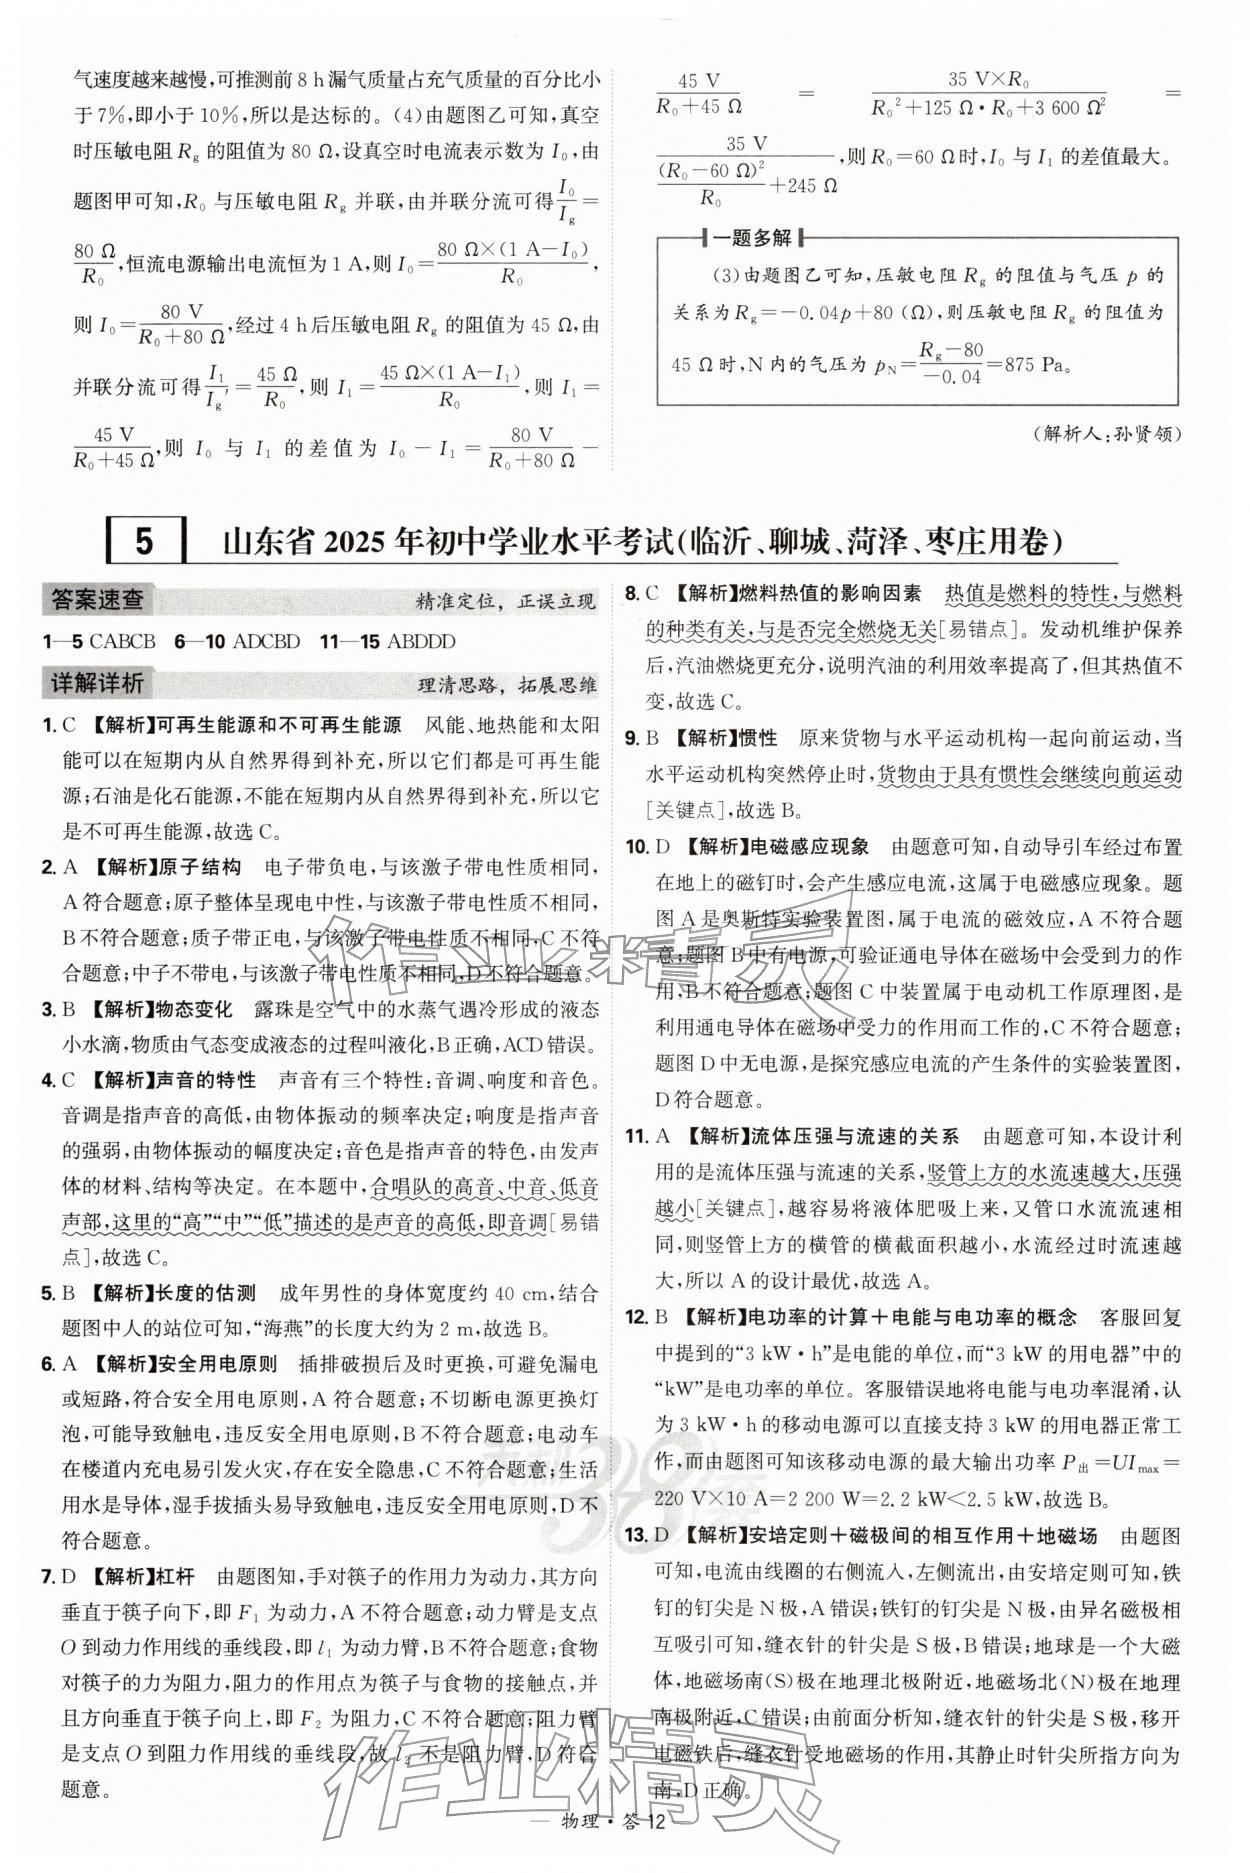 气速度越来越慢,可推测前 8 h 漏气质量占充气质量的百分比小
于 7%,即小于 10%,所以是达标的。(4)由题图乙可知,真空
时压敏电阻 Rg 的阻值为 80 Ω,设真空时电流表示数为 I₀,由
题图甲可知,R₀ 与压敏电阻 Rg 并联,由并联分流可得 I₀/Ig =
80 Ω/R₀,恒流电源输出电流恒为 1 A,则 I₀ = 80 Ω×(1 A−I₀)/R₀,
则 I₀ = 80 V/(R₀+80 Ω),经过 4 h 后压敏电阻 Rg 的阻值为 45 Ω,由
并联分流可得 I₁/Ig′ = 45 Ω/R₀,则 I₁ = 45 Ω×(1 A−I₁)/R₀,则 I₁ =
45 V/(R₀+45 Ω),则 I₀ 与 I₁ 的差值为 I₀−I₁ = 80 V/(R₀+80 Ω) −
45 V/(R₀+45 Ω) = 35 V×R₀/(R₀²+125 Ω·R₀+3 600 Ω²) =
35 V/((R₀−60 Ω)²/R₀+245 Ω),则 R₀=60 Ω 时,I₀ 与 I₁ 的差值最大。
一题多解
(3)由题图乙可知,压敏电阻 Rg 的阻值与气压 p 的
关系为 Rg=−0.04p+80 (Ω),则压敏电阻 Rg 的阻值为
45 Ω 时,N 内的气压为 pN = (Rg−80)/−0.04 = 875 Pa。
(解析人:孙贤领)
5 山东省 2025 年初中学业水平考试(临沂、聊城、菏泽、枣庄用卷)
答案速查 精准定位,正误立现
1—5 CABCB 6—10 ADCBD 11—15 ABDDD
详解详析 理清思路,拓展思维
1. C 【解析】可再生能源和不可再生能源 风能、地热能和太阳
能可以在短期内从自然界得到补充,所以它们都是可再生能
源;石油是化石能源,不能在短期内从自然界得到补充,所以它
是不可再生能源,故选 C。
2. A 【解析】原子结构 电子带负电,与该激子带电性质相同,
A 符合题意;原子整体呈现电中性,与该激子带电性质不相同,
B 不符合题意;质子带正电,与该激子带电性质不相同,C 不符
合题意;中子不带电,与该激子带电性质不相同,D 不符合题意。
3. B 【解析】物态变化 露珠是空气中的水蒸气遇冷形成的液态
小水滴,物质由气态变成液态的过程叫液化,B 正确,ACD 错误。
4. C 【解析】声音的特性 声音有三个特性:音调、响度和音色。
音调是指声音的高低,由物体振动的频率决定;响度是指声音
的强弱,由物体振动的幅度决定;音色是指声音的特色,由发声
体的材料、结构等决定。在本题中,合唱队的高音、中音、低音
声部,这里的“高”“中”“低”描述的是声音的高低,即音调[易错
点],故选 C。
5. B 【解析】长度的估测 成年男性的身体宽度约 40 cm,结合
题图中人的站位可知,“海燕”的长度大约为 2 m,故选 B。
6. A 【解析】安全用电原则 插排破损后及时更换,可避免漏电
或短路,符合安全用电原则,A 符合题意;不切断电源更换灯
泡,可能导致触电,违反安全用电原则,B 不符合题意;电动车
在楼道内充电易引发火灾,存在安全隐患,C 不符合题意;生活
用水是导体,湿手拔插头易导致触电,违反安全用电原则,D 不
符合题意。
7. D 【解析】杠杆 由题图知,手对筷子的作用力为动力,其方向
垂直于筷子向下,即 F₁ 为动力,A 不符合题意;动力臂是支点
O 到动力作用线的垂线段,即 l₁ 为动力臂,B 不符合题意;食物
对筷子的力为阻力,阻力的作用点为筷子与食物的接触点,并
且方向垂直于筷子向上,即 F₂ 为阻力,C 不符合题意;阻力臂
是支点 O 到阻力作用线的垂线段,故 l₂ 不是阻力臂,D 符合
题意。
8. C 【解析】燃料热值的影响因素 热值是燃料的特性,与燃料
的种类有关,与是否完全燃烧无关[易错点]。发动机维护保养
后,汽油燃烧更充分,说明汽油的利用效率提高了,但其热值不
变,故选 C。
9. B 【解析】惯性 原来货物与水平运动机构一起向前运动,当
水平运动机构突然停止时,货物由于具有惯性会继续向前运动
[关键点],故选 B。
10. D 【解析】电磁感应现象 由题意可知,自动导引车经过布置
在地上的磁钉时,会产生感应电流,这属于电磁感应现象。题
图 A 是奥斯特实验装置图,属于电流的磁效应,A 不符合题
意;题图 B 中有电源,可验证通电导体在磁场中会受到力的作
用,B 不符合题意;题图 C 中装置属于电动机工作原理图,是
利用通电导体在磁场中受力的作用而工作的,C 不符合题意;
题图 D 中无电源,是探究感应电流的产生条件的实验装置图,
D 符合题意。
11. A 【解析】流体压强与流速的关系 由题意可知,本设计利
用的是流体压强与流速的关系,竖管上方的水流速越大,压强
越小[关键点],越容易将液体肥吸上来,又管口水流流速相
同,则竖管上方的横管的横截面积越小,水流经过时流速越
大,所以 A 的设计最优,故选 A。
12. B 【解析】电功率的计算+电能与电功率的概念 客服回复
中提到的“3 kW·h”是电能的单位,而“3 kW 的用电器”中的
“kW”是电功率的单位。客服错误地将电能与电功率混淆,认
为 3 kW·h 的移动电源可以直接支持 3 kW 的用电器正常工
作,而由题图可知该移动电源的最大输出功率 P出=UImax=
220 V×10 A=2 200 W=2.2 kW<2.5 kW,故选 B。
13. D 【解析】安培定则+磁极间的相互作用+地磁场 由题图
可知,电流由线圈的右侧流入,左侧流出,由安培定则可知,铁
钉的钉尖是 N 极,A 错误;铁钉的钉尖是 N 极,由异名磁极相
互吸引可知,缝衣针的针尖是 S 极,B 错误;地球是一个大磁
体,地磁场南(S)极在地理北极附近,地磁场北(N)极在地理
南极附近,C 错误;由前面分析知,缝衣针的针尖是 S 极,移开
电磁铁后,缝衣针受地磁场的作用,其静止时针尖所指方向为
南,D 正确。
作业精灵
天利38套
作业精灵
— 物理·答 12